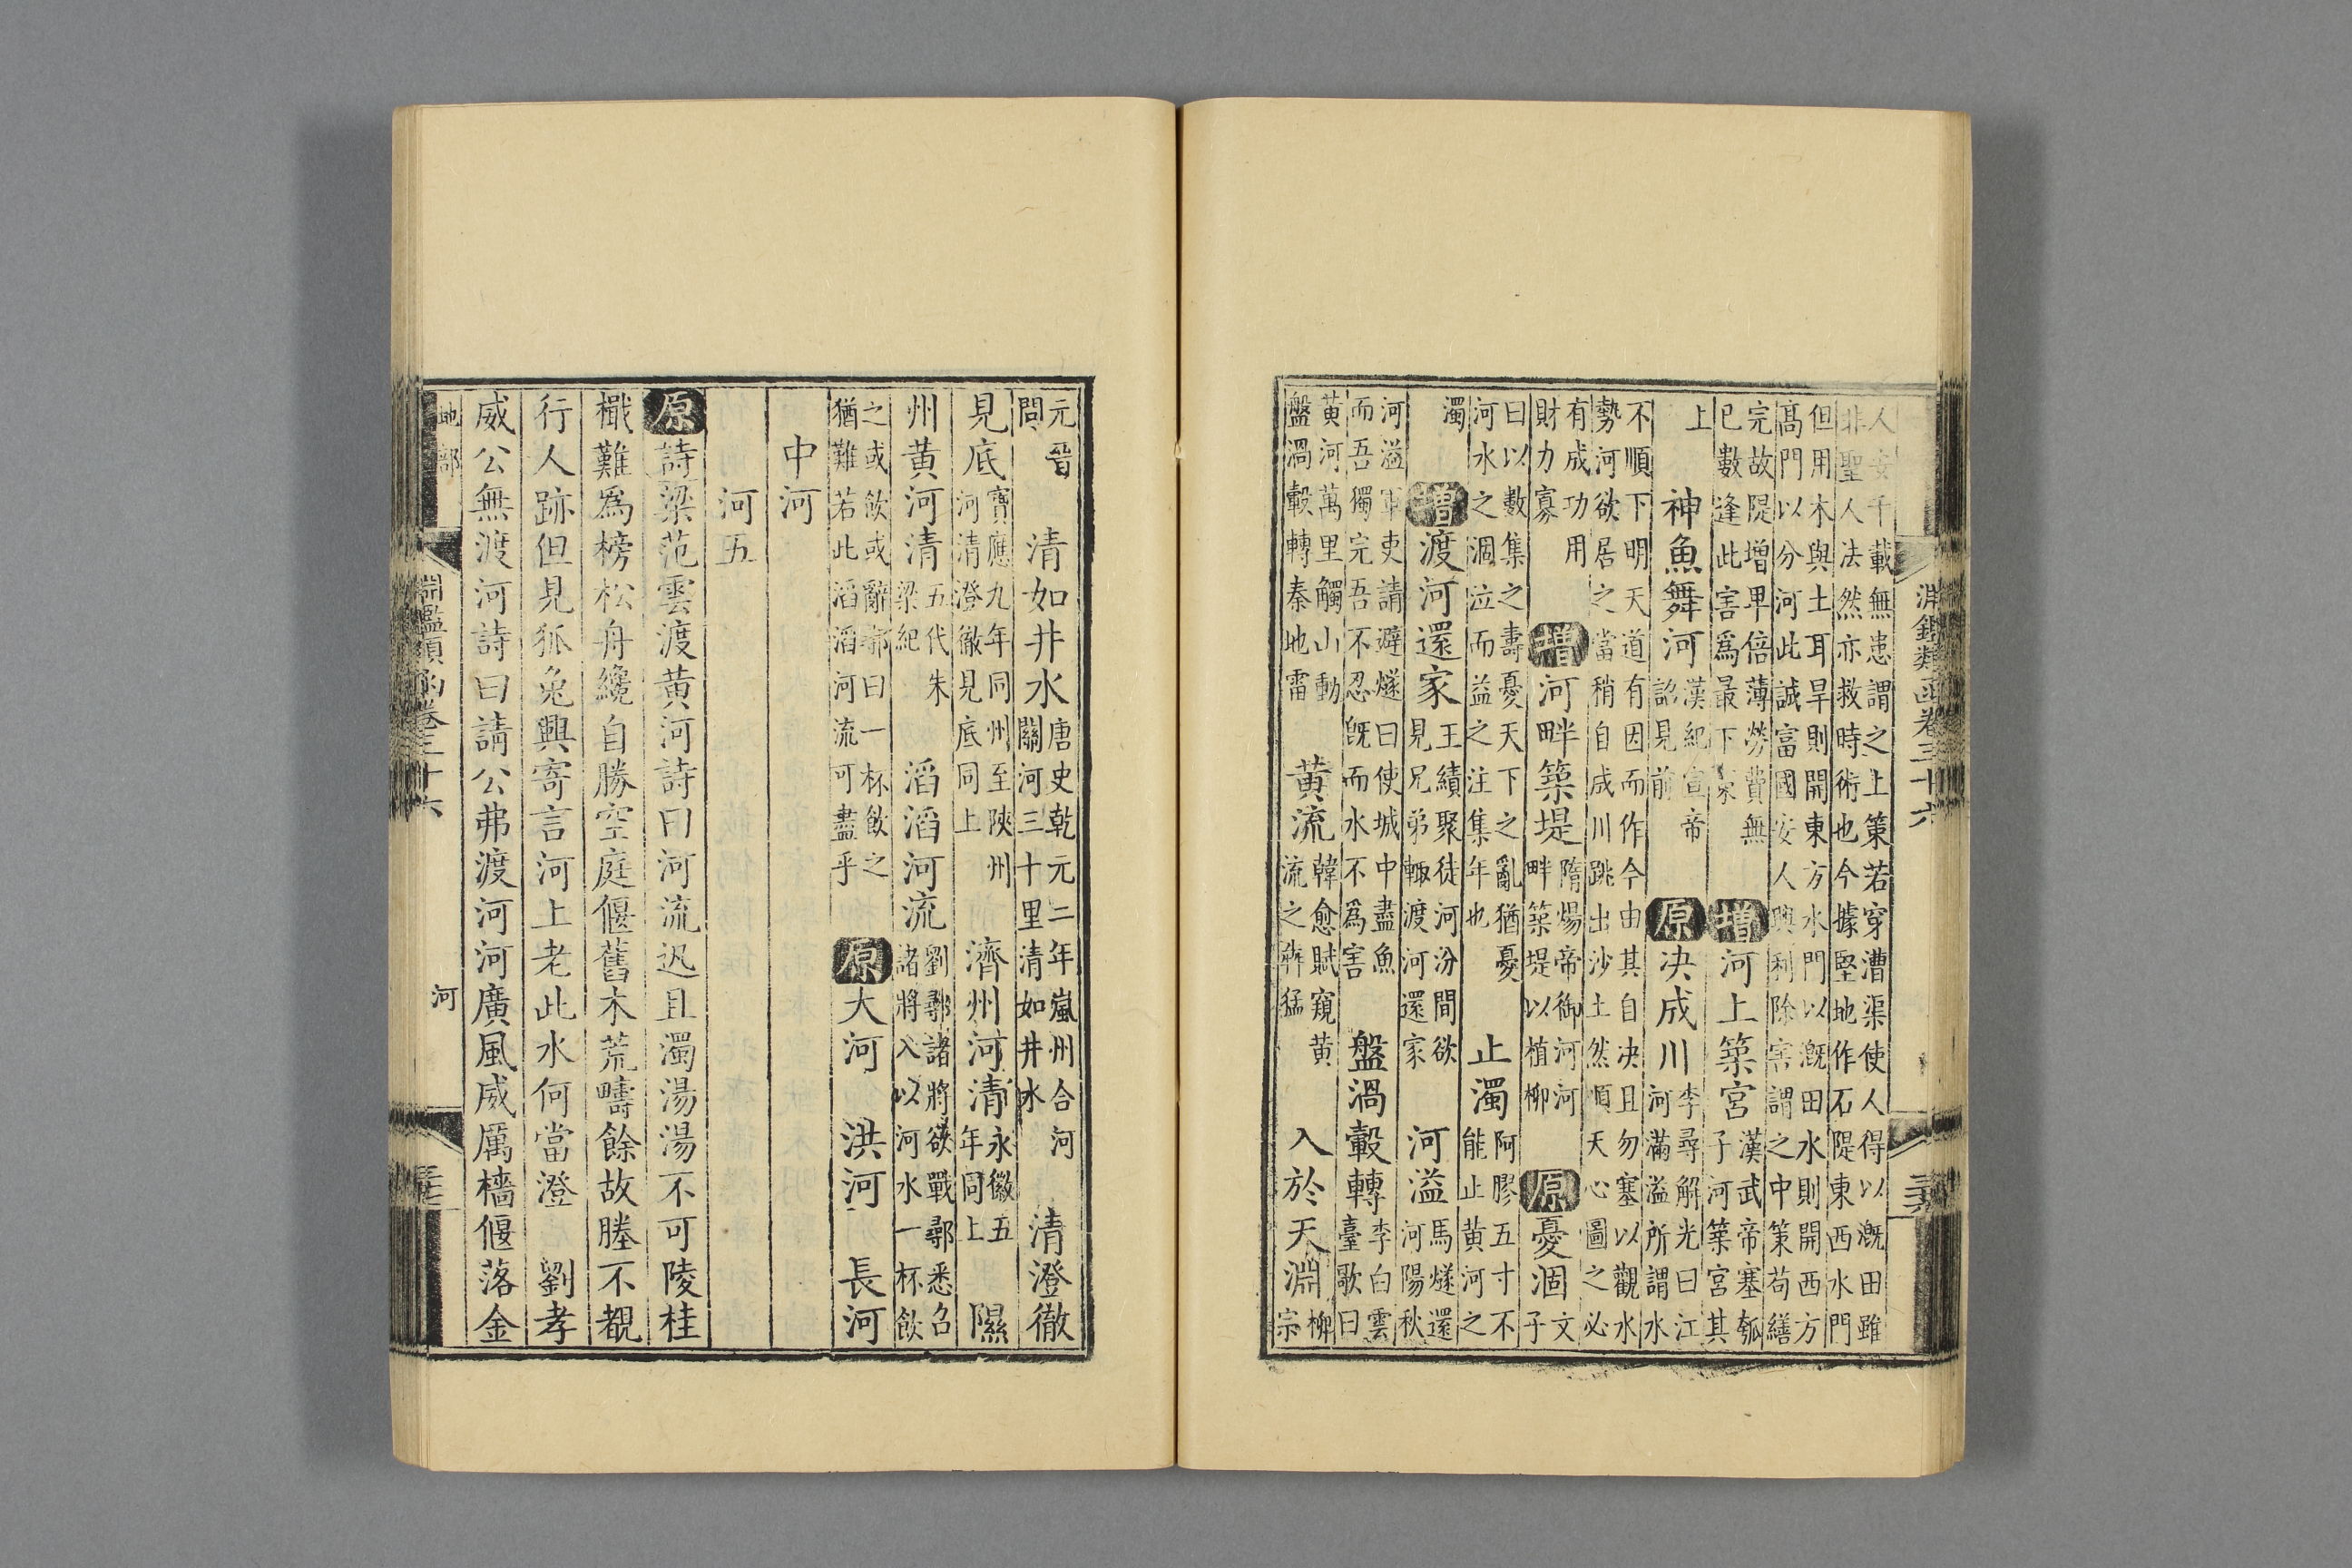 淵鑑類函卷三十六
人安千載無患謂之上策若穿漕渠使人得以漑田雖
非聖人法然亦救時術也今據堅地作石隄東西水門
但用木與土耳旱則開東方水門以漑田水則開西方
高門以分河此誠富國安人興利除害謂之中策苟繕
完故隄增卑倍薄勞費無
已數逢此害爲最下策
增河上築宮漢武帝塞瓠
子河築宮其
上
神魚舞河漢紀宣帝
詔見前
原决成川李尋解光曰江
河滿溢所謂水
不順下下明天道有因而作今由其自决且勿塞以觀水
勢河欲居之當稍自成川跳出沙土然順天心圖之必
有成功用
財力寡
增河畔築堤隋煬帝御河河
畔築堤以植柳
原憂涸文
子
曰以數集之壽憂天下之亂猶憂
河水之涸泣而益之注集年也
止濁阿膠五寸不
能止黄河之
濁
增渡河還家王績聚徒河汾間欲
見兄弟輙渡河還家
河溢馬燧還
河陽秋
河溢軍吏請避燧曰使城中盡魚
而吾獨完吾不忍旣而水不為害
盤渦轂轉李白雲
臺歌曰
黄河萬里觸山動
盤渦轂轉秦地雷
黄流韓愈賦窺黄
流之犇猛
入於天淵柳
宗
元晉
問
清如井水唐史乾元二年嵐州合河
關河三十里清如井水
清澄徹
見底寶應九年同州至陝州
河清澄徹見底同上
濟州河清永徽五
年同上
隰
州黄河清五代朱
梁紀
滔滔河流劉鄩諸將欲戰鄩悉召
諸將入以河水一杯飮
之或飮或辭鄩曰一杯飮之
猶難若此滔滔河流可盡乎
原大河
洪河
長河
中河
河五
原詩梁范雲渡黄河詩曰河流迅且濁湯湯不可陵桂
檝難爲榜松舟纔自勝空庭偃舊木荒疇餘故塍不覩
行人跡但見狐兔興寄言河上老此水何當澄 劉孝
威公無渡河詩曰請公弗渡河河廣風威厲檣偃落金
地部
淵鑑類函卷三十六
河